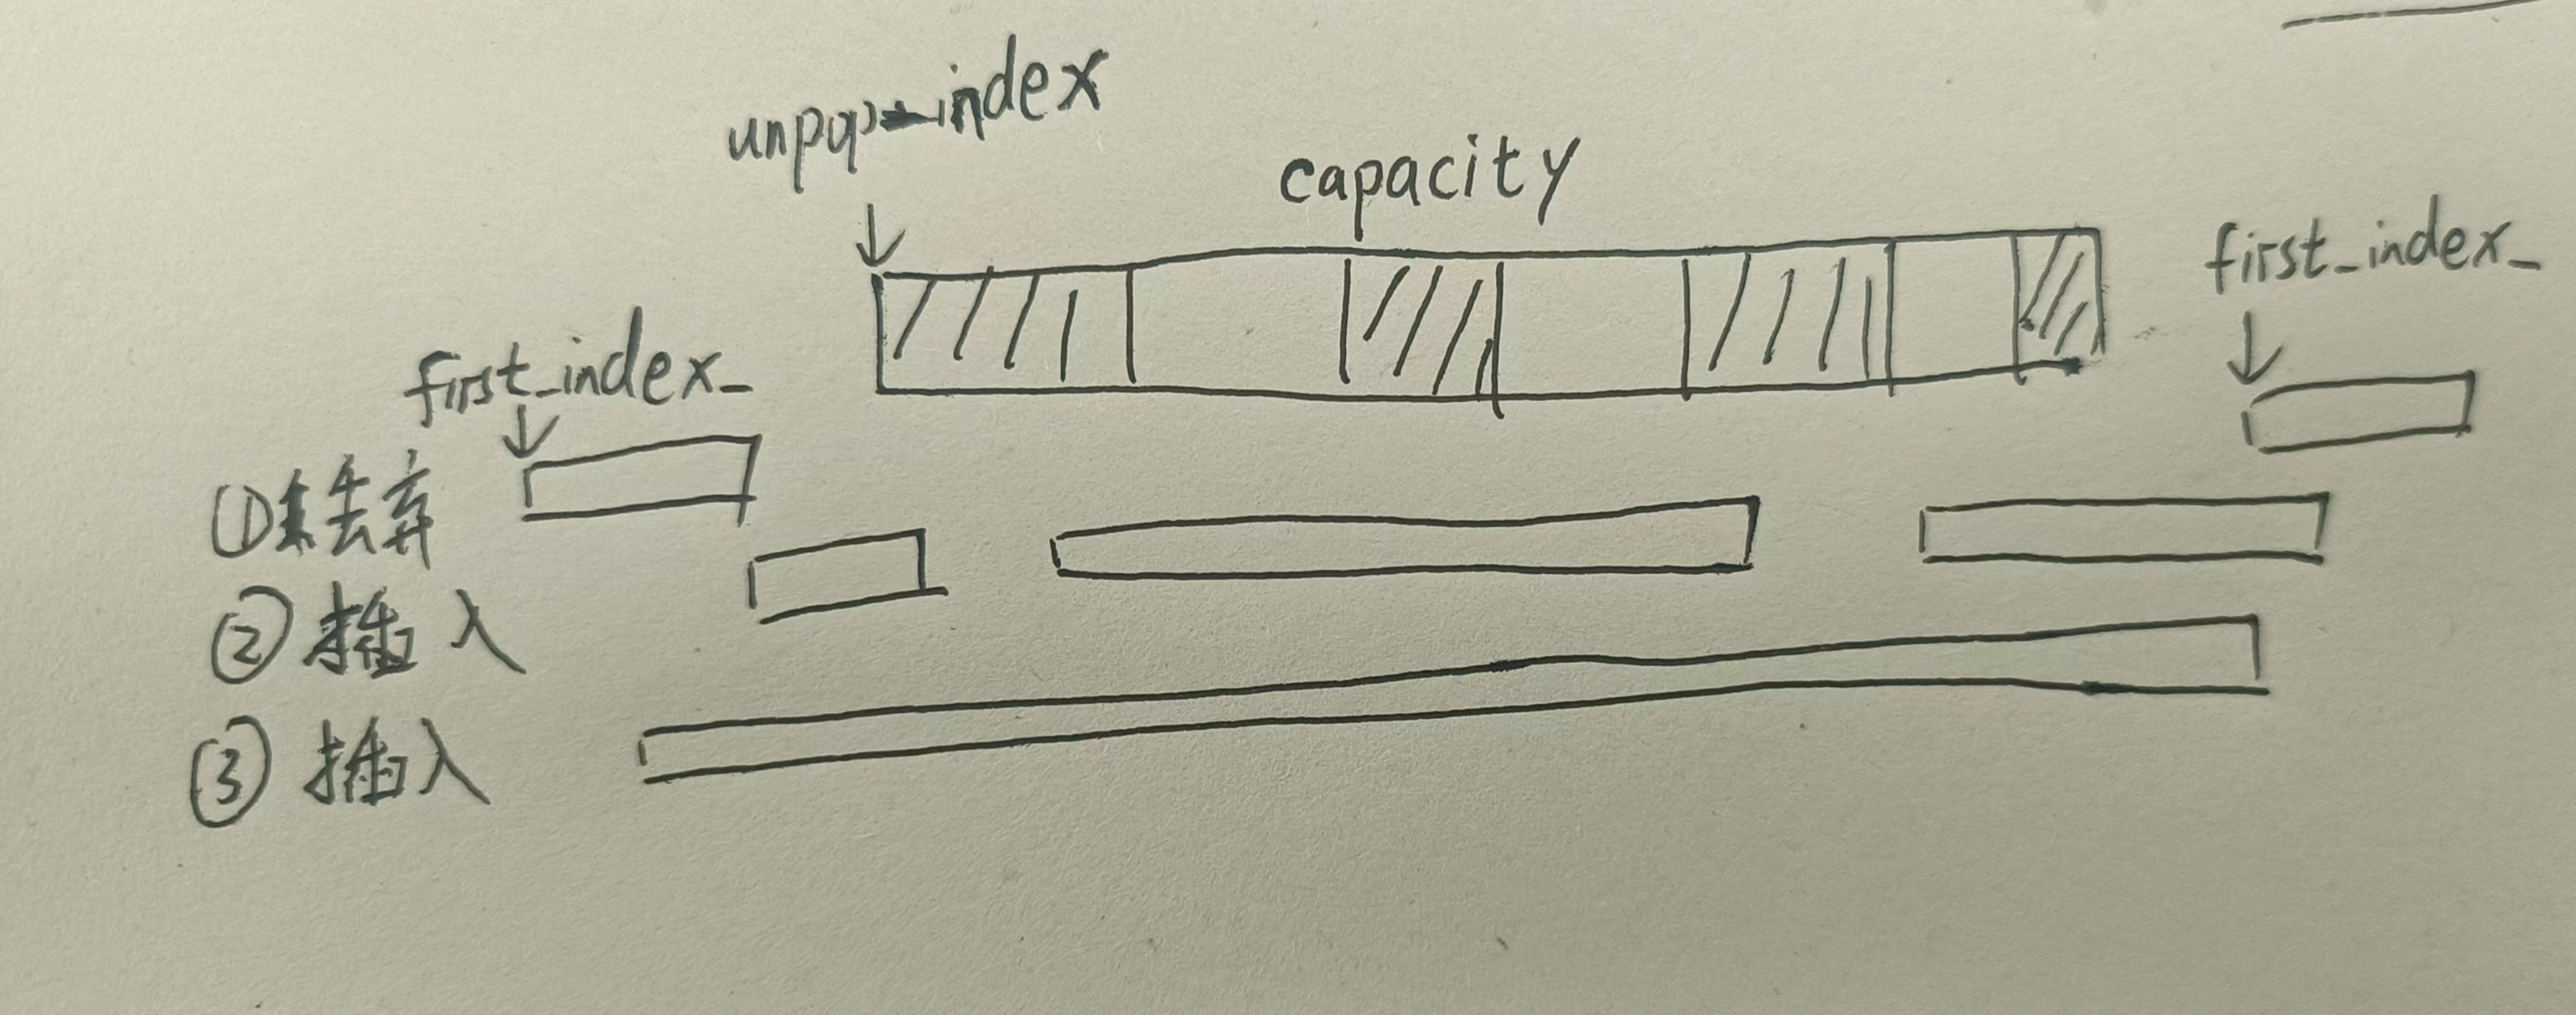 unpop_index
capacity
first_index_
first_index_
①丢弃
②插入
③插入